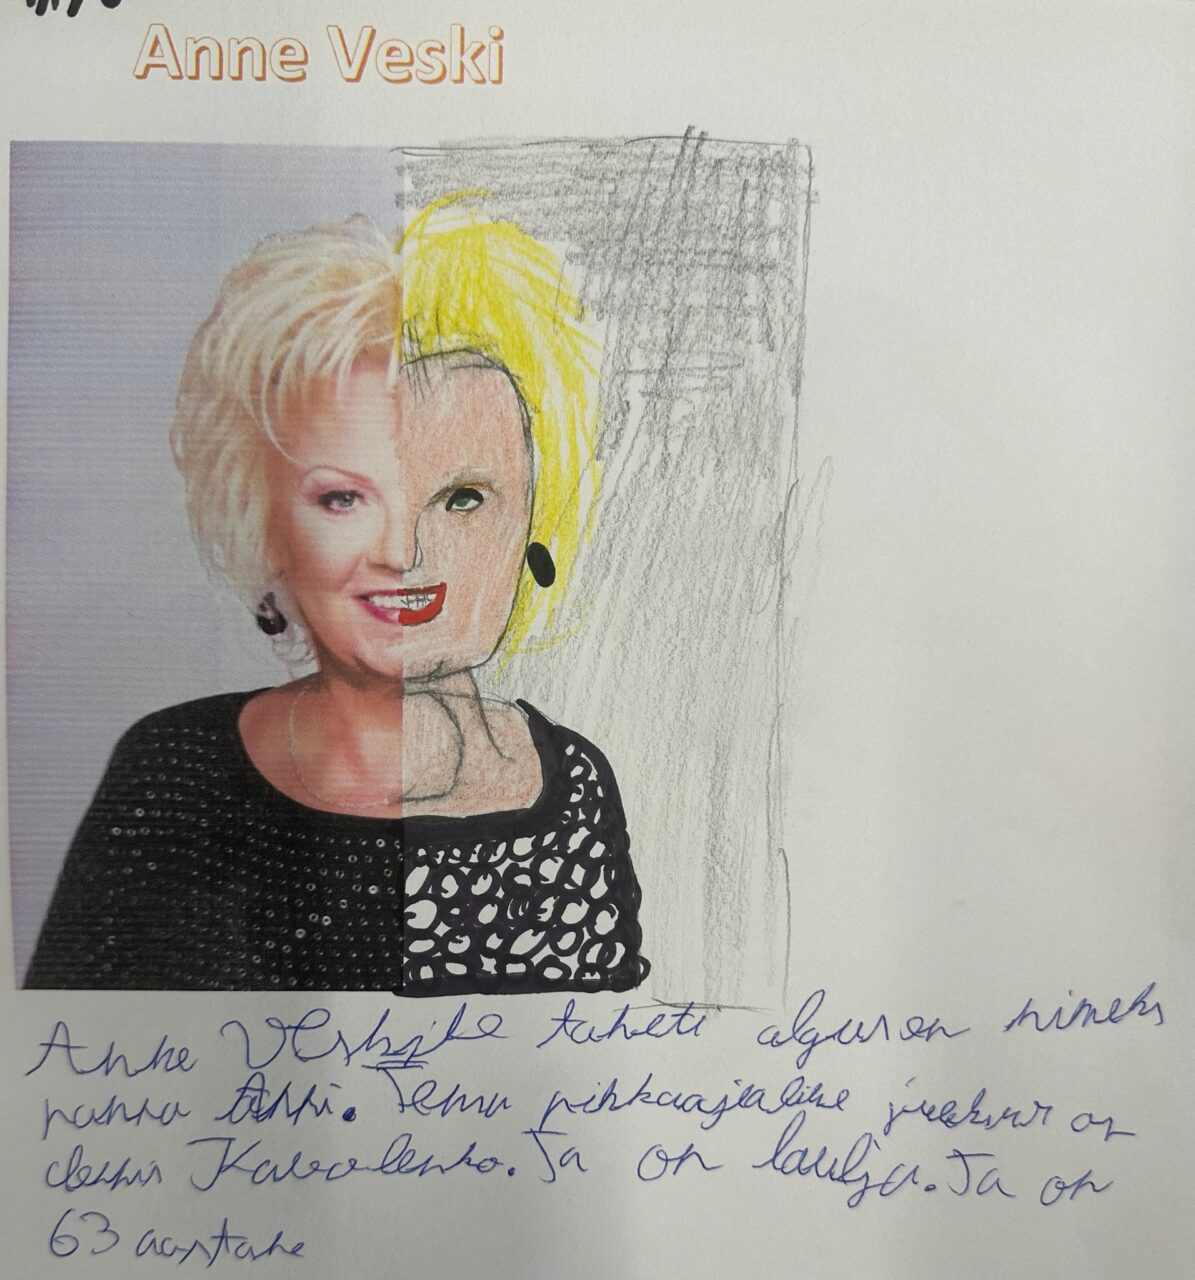 Anne Veski
Anne Veskile taheti algusen nimeks
panna Anni. Tema pikkaajaline juuksur on
Kavalenko. Ta on laulja. Ta on
63 aastane